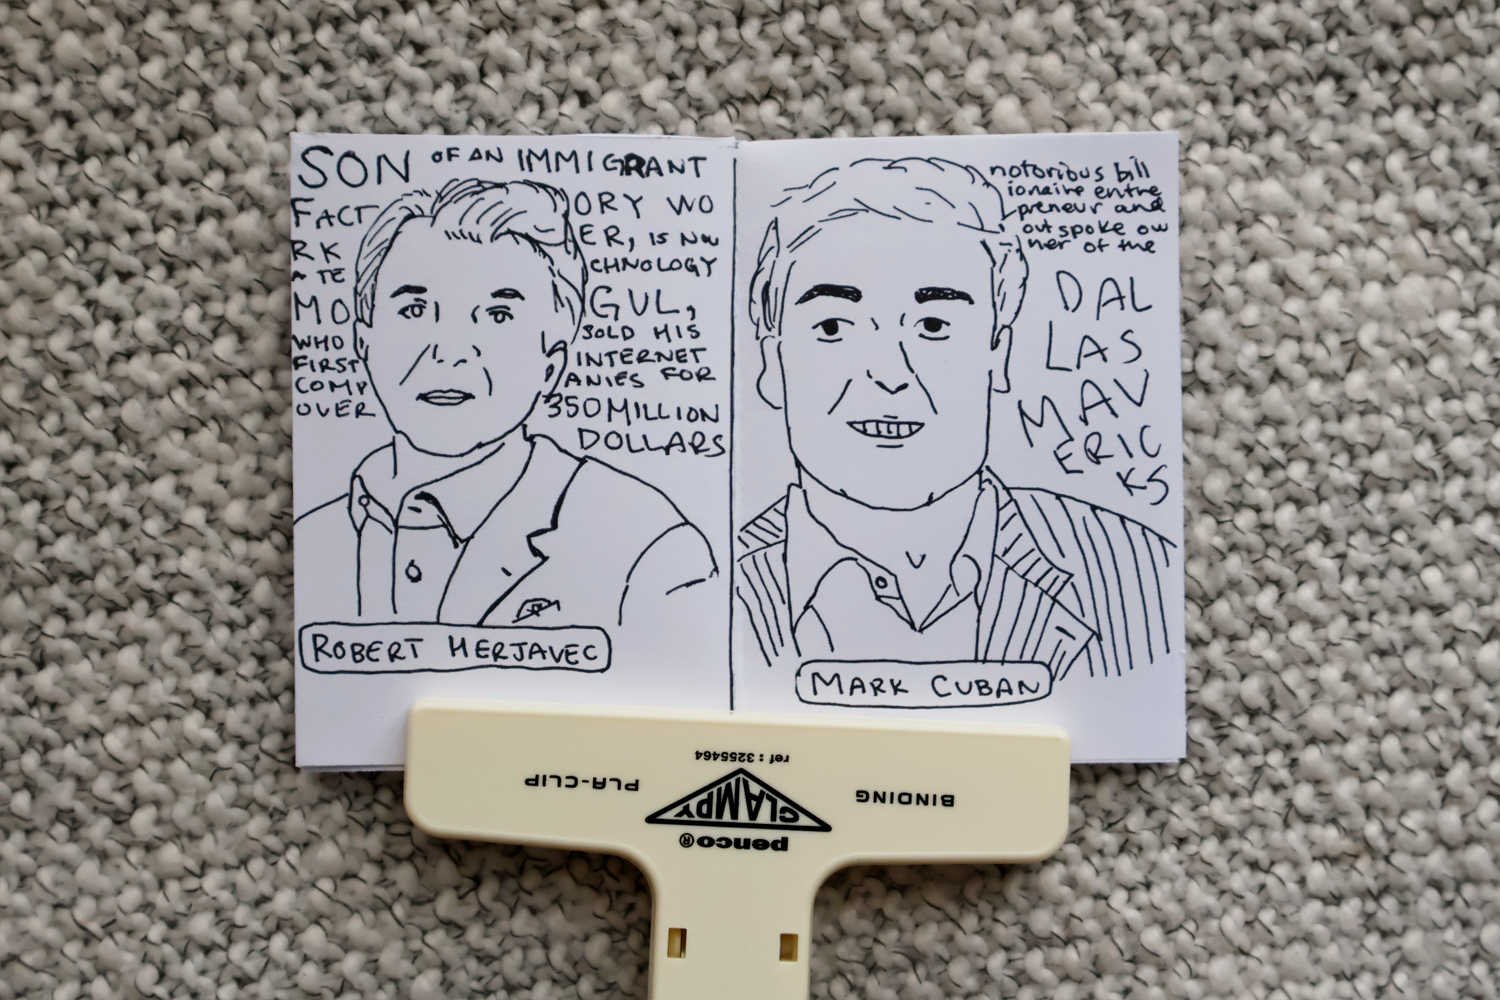 SON OF AN IMMIGRANT
FACTORY WO
RKER, IS NOW
A TECHNOLOGY
MOGUL,
WHO SOLD HIS
FIRST INTERNET
COMPANIES FOR
OVER 350 MILLION
DOLLARS
ROBERT HERJAVEC
notorious bill
ionaire entre
preneur and
outspoke ow
ner of the
DAL
LAS
MAV
ERIC
KS
MARK CUBAN
ref : 3255464
BINDING
PLA-CLIP
CLAMPY
penco®